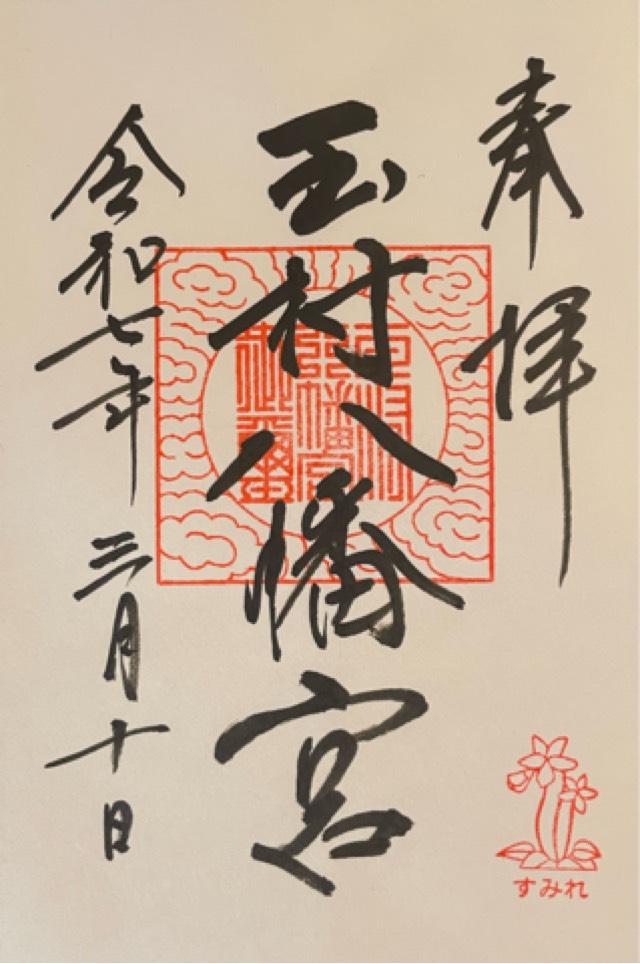 奉拝
玉村八幡宮
令和七年 三月十日
すみれ